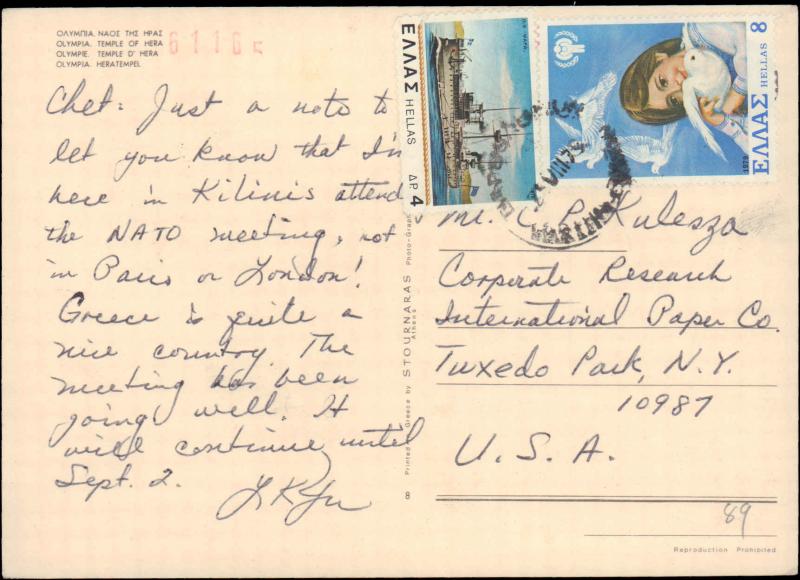 ΟΛΥΜΠΙΑ. ΝΑΟΣ ΤΗΣ ΗΡΑΣ
OLYMPIA. TEMPLE OF HERA
OLYMPIE. TEMPLE D' HERA
OLYMPIA. HERATEMPEL
61165
Chet: Just a note to
let you know that I'm
here in Kilinis attend
the NATO meeting, not
in Paris or London!
Greece is quite a
nice country. The
meeting has been
going well. It
will continue until
Sept. 2.
ΕΛΛΑΣ HELLAS ΔΡ 4
ΕΛΛΑΣ HELLAS 8
1979
Mr. C. P. Kulesza
Corporate Research
International Paper Co.
Tuxedo Park, N.Y.
10987
U. S. A.
Printed in Greece by STOURNARAS Photo-Graph
Athens
8
89
Reproduction Prohibited